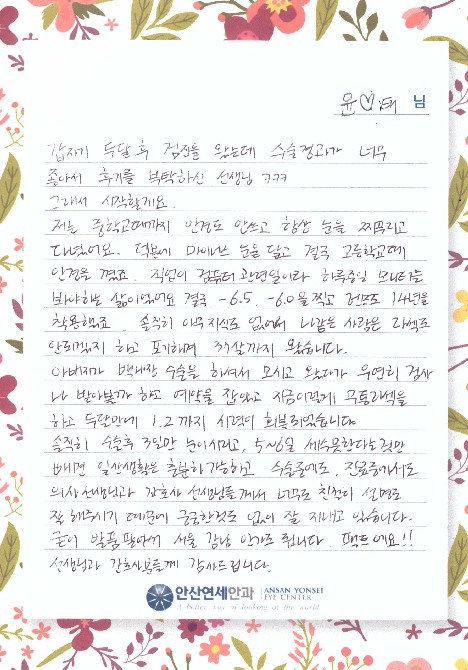 윤♡태 님
갑자기 두달 후 검진을 왔는데 수술경과가 너무
좋아서 후기를 부탁하신 선생님 ㅋㅋㅋ
그래서 시작할게요.
저는 중학교때까지 안경도 안쓰고 항상 눈을 찌푸리고
다녔어요. 덕분에 마이너스 눈을 달고 결국 고등학교때
안경을 꼈죠. 직업이 컴퓨터 관련일이라 하루종일 모니터를
봐야하는 삶이었어요 결국 -6.5, -6.0을 찍고 렌즈로 14년을
착용했죠. 솔직히 아무지식도 없어서 나같은 사람은 라섹도
안되겠지 하고 포기하며 37살까지 왔습니다.
아버지가 백내장 수술을 하셔서 모시고 왔다가 우연히 검사
나 받아볼까 하고 예약을 잡았고 지금이렇게 무통라섹을
하고 두달만에 1.2까지 시력이 회복되었습니다
솔직히 수술후 3일만 눈이시리고, 5~6일 세수못한다는것만
빼면 일상생활은 충분히 가능하고 수술중에도, 진료중에서도
의사선생님과 간호사 선생님들께서 너무도 친절히 설명도
잘 해주시기 때문에 궁금한것도 없이 잘 지내고 있습니다.
굳이 발품팔아서 서울 강남 안가도 됩니다. 팩트에요!!
선생님과 간호사분들께 감사드립니다.
안산연세안과 ANSAN YONSEI
EYE CENTER
A better way of looking at the world